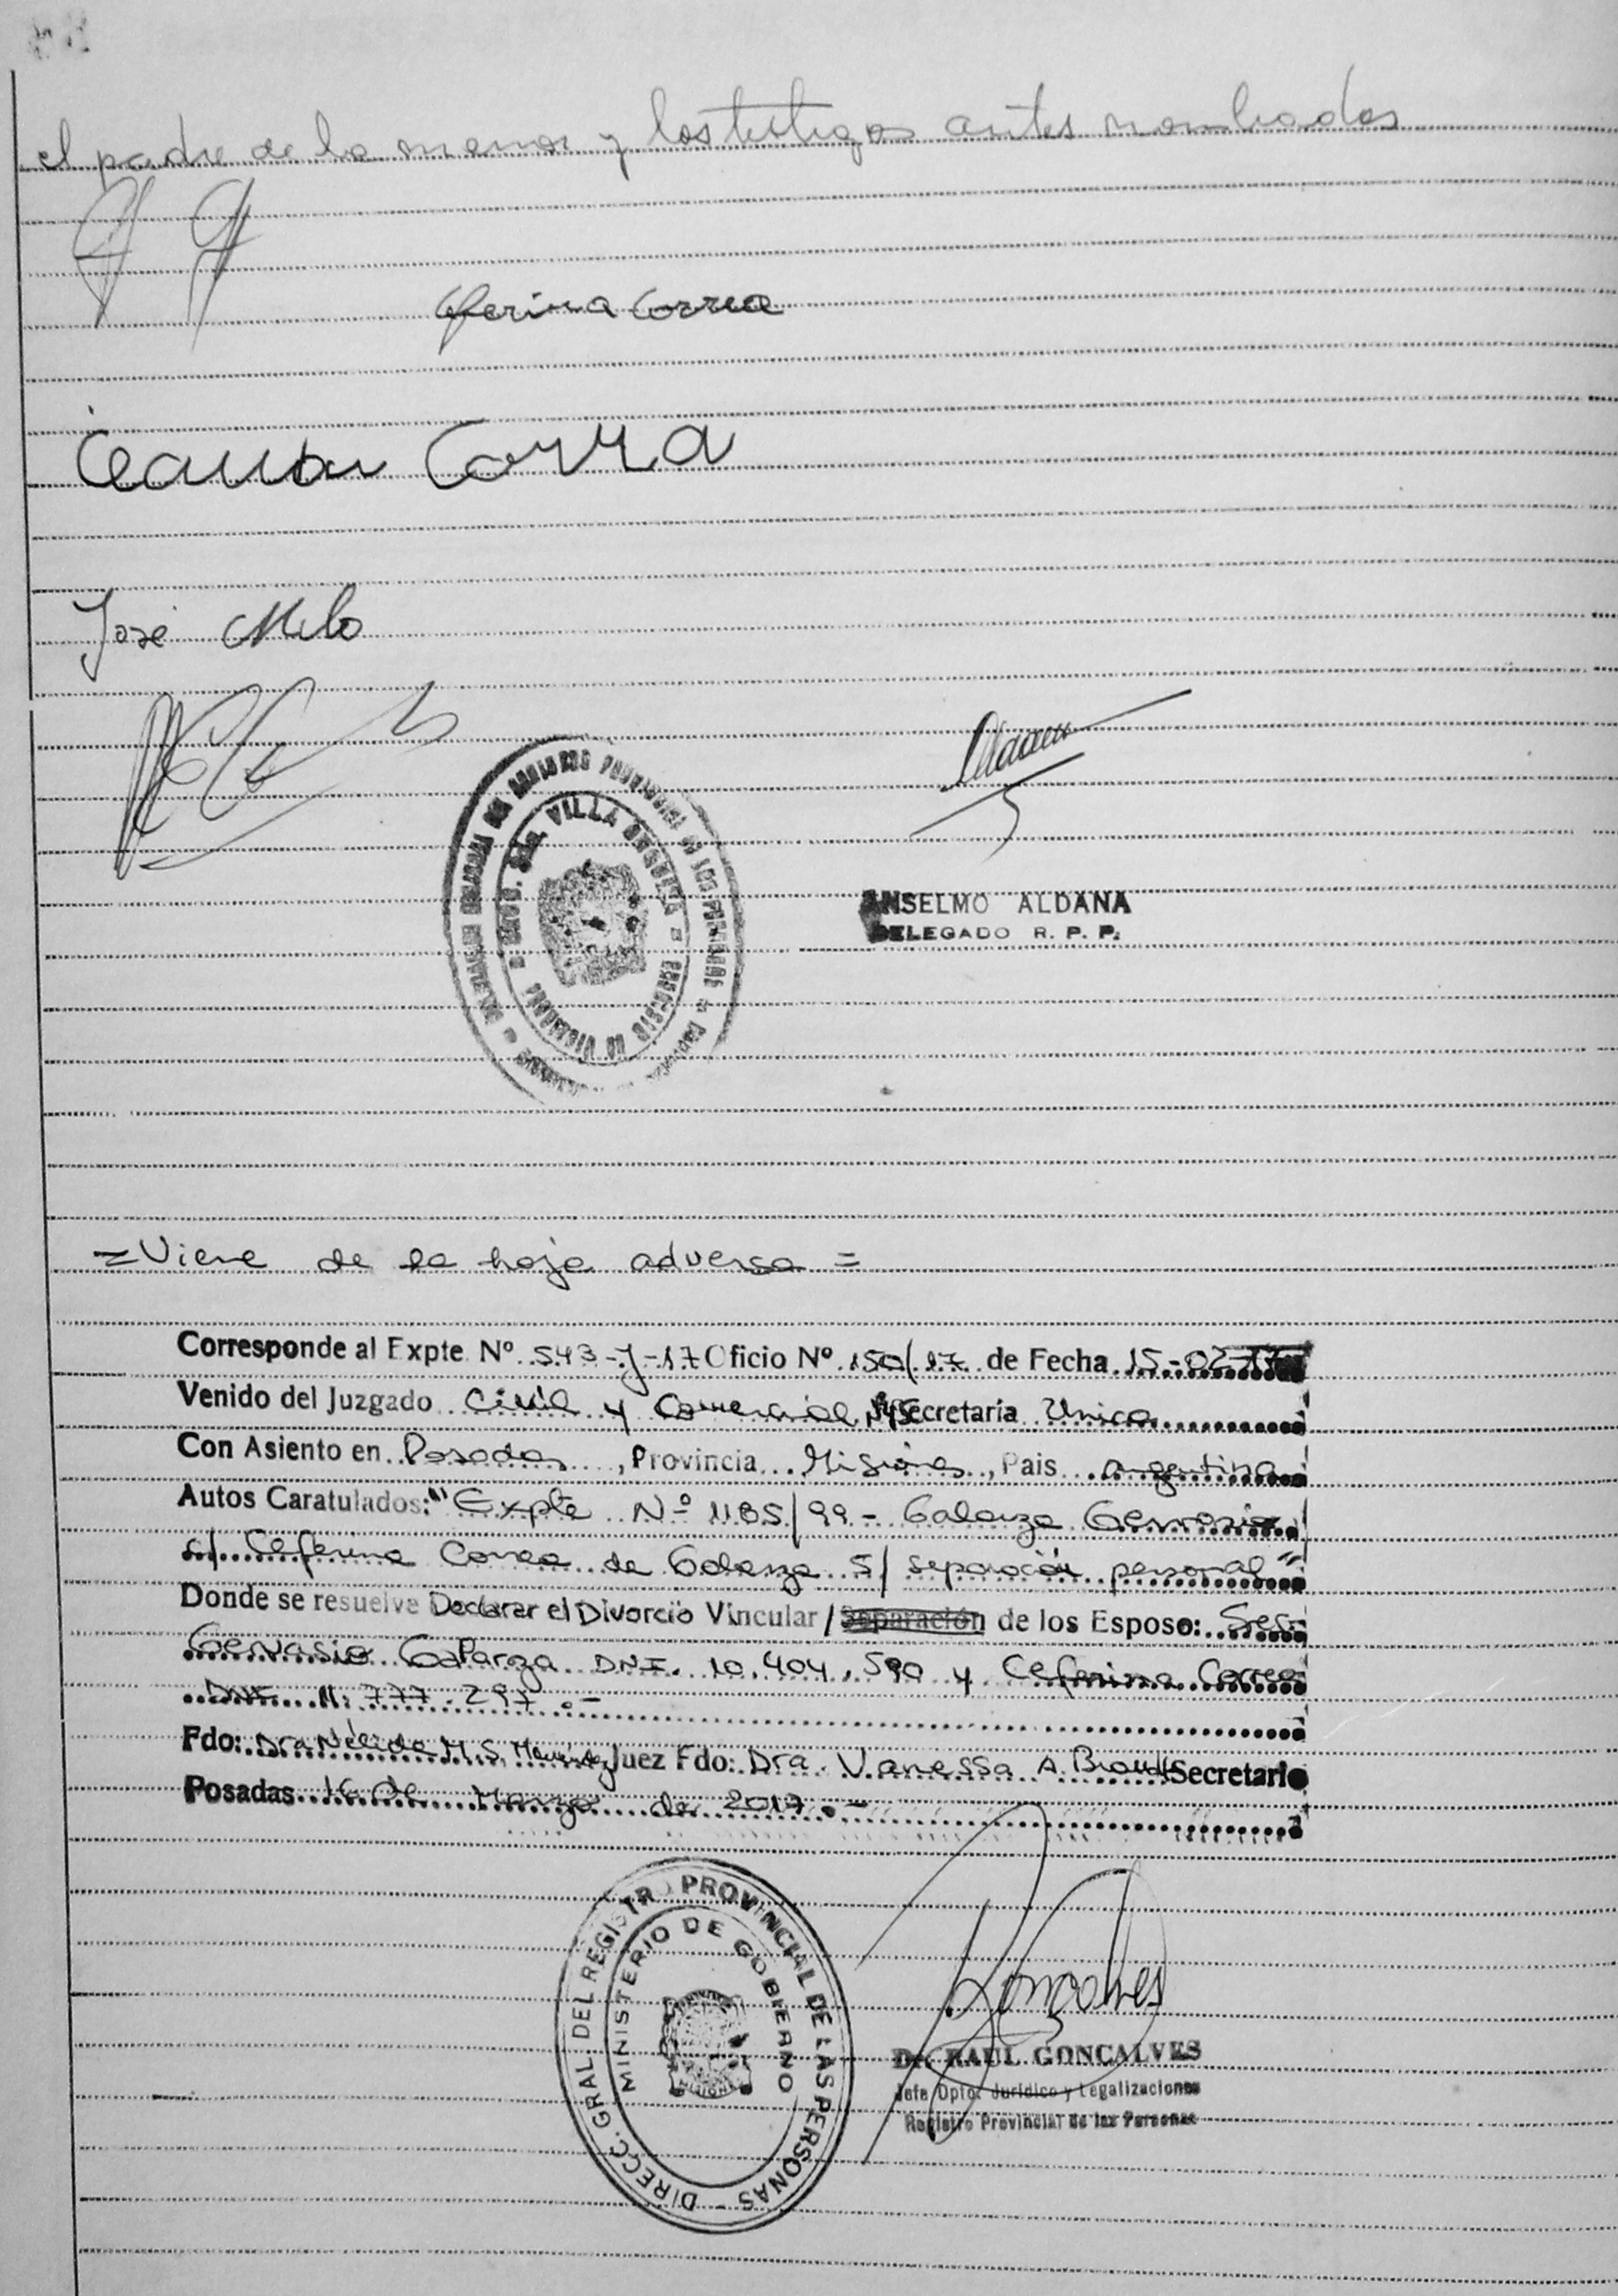 el padre de la menor y los testigos antes nombrados
Ceferina Correa
Correa
José Melo
VILLA
ANSELMO ALDANA
DELEGADO R. P. P.
= Viene de la hoja adversa =
Corresponde al Expte Nº 543-J-17 Oficio Nº 150/17 de Fecha 15-02-17
Venido del Juzgado Civil y Comercial Secretaria Unica
Con Asiento en Posadas, Provincia Misiones, Pais Argentina
Autos Caratulados: "Expte Nº 1185/99 - Galarza Gervasio
c/ Ceferina Correa de Galarza S/ separación personal"
Donde se resuelve Declarar el Divorcio Vincular / Separación de los Esposo: Sres.
Gervasio Galarza DNI. 10.404.590 y Ceferina Correa
DNI. 11.777.297.-
Fdo: Dra Nélida M. S. Juez Fdo: Dra. Vanessa A. Secretario
Posadas 16 de Marzo de 2017.-
DIRECC. GRAL. DEL REGISTRO PROVINCIAL DE LAS PERSONAS -
MINISTERIO DE GOBIERNO
MISIONES
Goncalves
Dr. RAUL GONCALVES
Jefe Dpto. Jurídico y Legalizaciones
Registro Provincial de las Personas